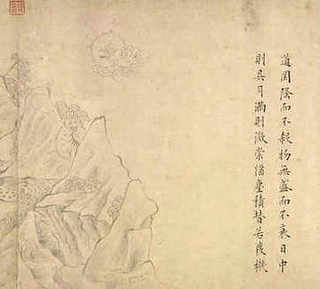 道罔隆而不殺物無盛而不衰日中
則昃月滿則微崇猶塵積替若駭機